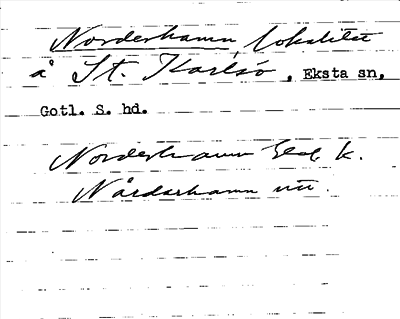 Norderhamn, lokalitet
å St. Karlsö, Eksta sn,
Gotl. S. hd.
Norderhamn k.
Nårdarhamn uu.